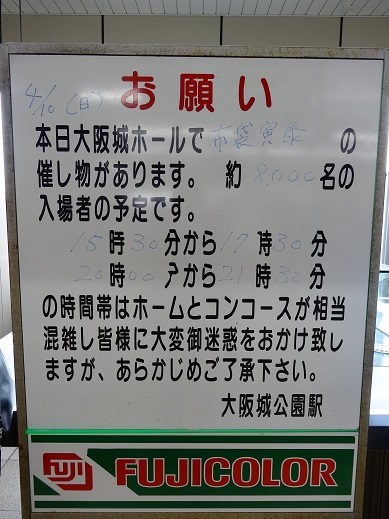 4/10(日)
お願い
本日大阪城ホールで 布袋寅泰 の
催し物があります。 約 8,000 名の
入場者の予定です。
15時30分から17時30分
20時00分から21時30分
の時間帯はホームとコンコースが相当
混雑し皆様に大変御迷惑をおかけ致し
ますが、あらかじめご了承下さい。
大阪城公園駅
FUJI FUJICOLOR